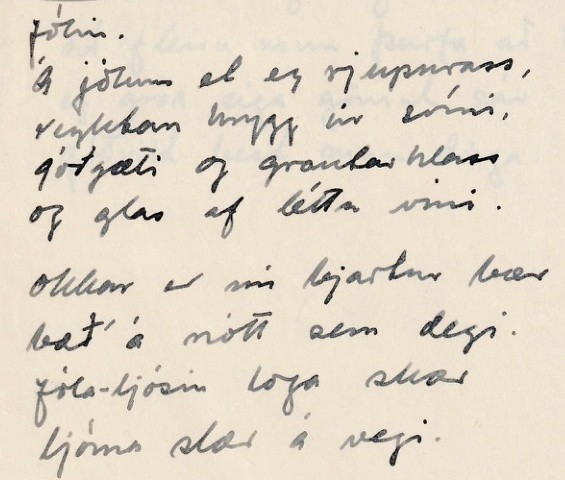 Jólin.
Á jólum et eg rjúpurass,
reyktan hrygg úr svíni,
góðgæti og grautarhlass
og glas af léttu víni.
Okkar er nú bjartur bær
bæð' á nótt sem degi.
Jóla-ljósin loga skær
ljóma slær á vegi.